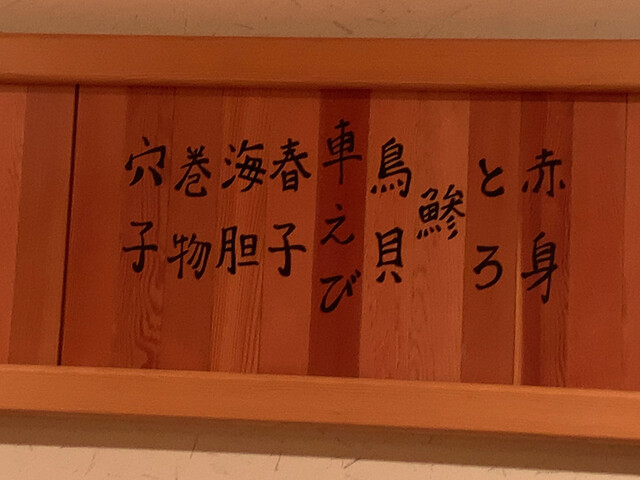 赤身
とろ
鯵
鳥貝
車えび
春子
海胆
巻物
穴子